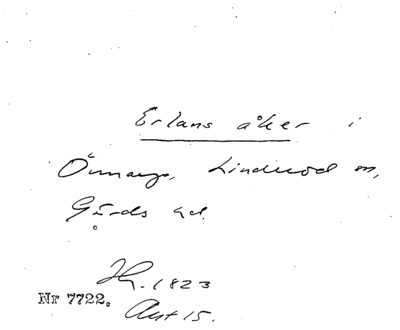 Erlans åker i
Önnarp, Linderöd sn,
Gärds hd.
Hg. 1823
Nr 7722.
Akt 15.